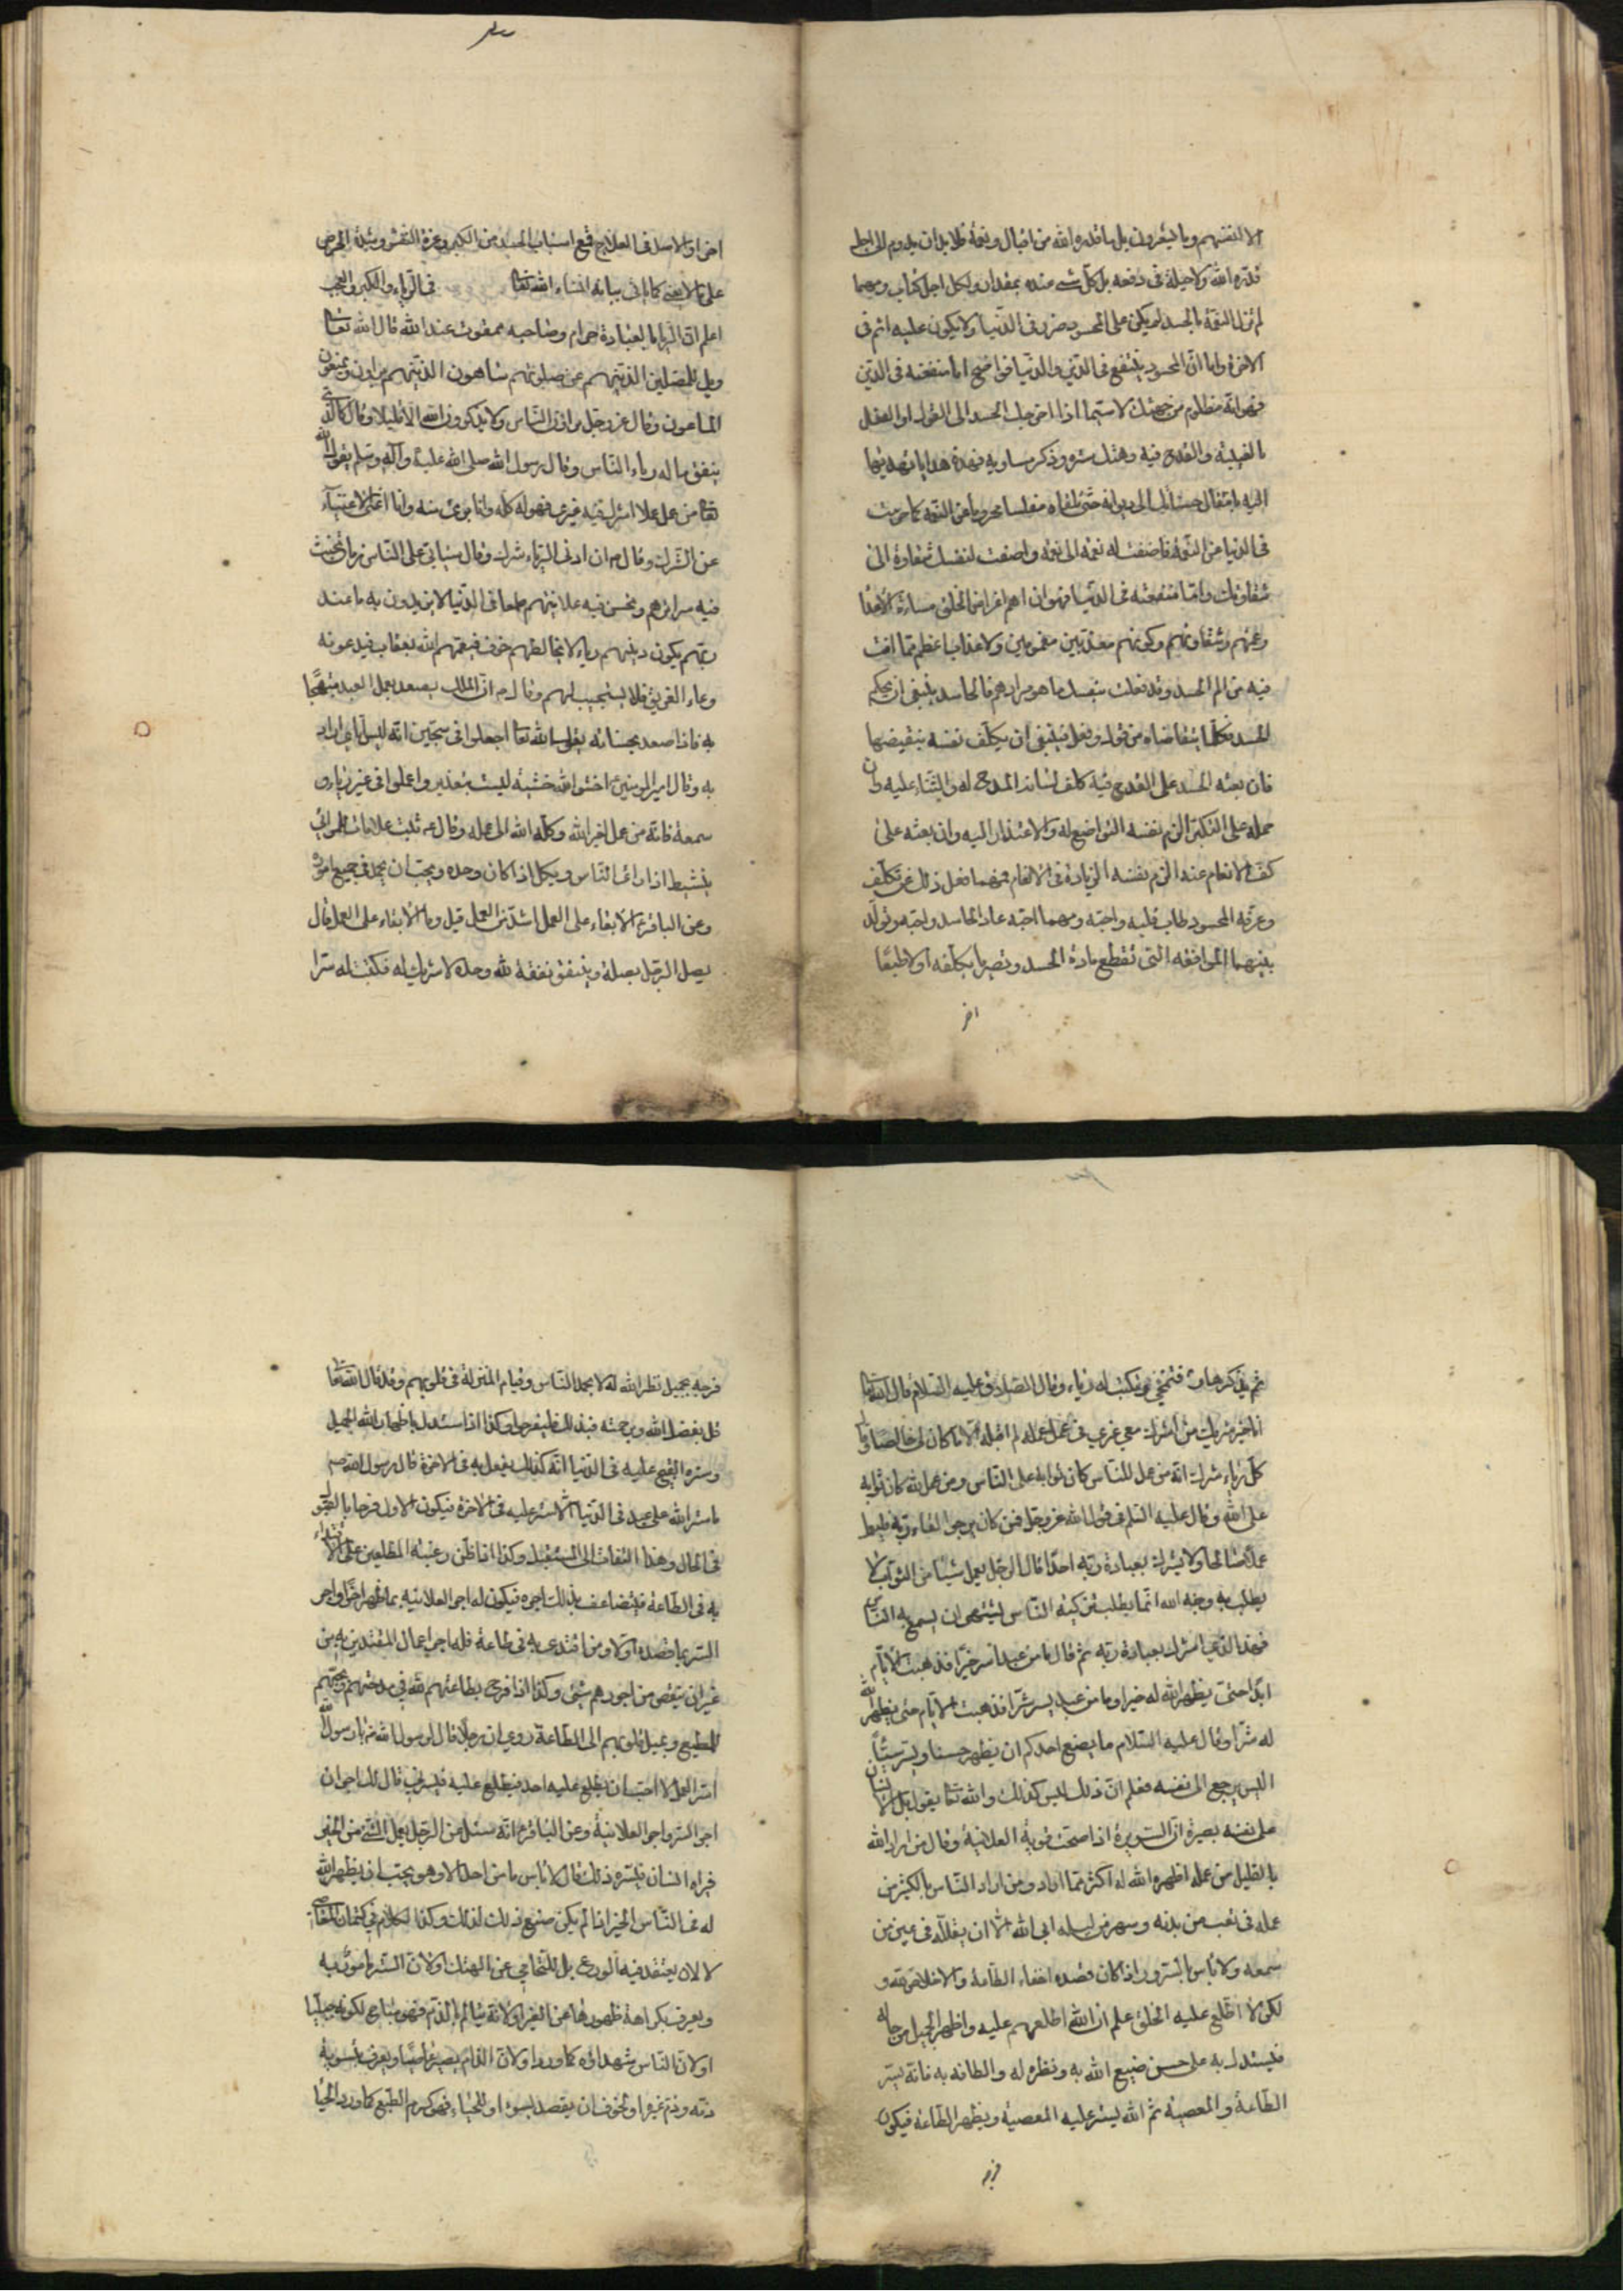 الا انفسهم وما يشعرون بل ما قدره الله من اقبال ونعمة فلا بد ان يدوم الى اجل
قدره الله ولا حيلة فى دفعه بل كل شىء عنده بمقدار ولكل اجل كتاب ومهما
لم تزل النعمة بالحسد لم يكن على المحسود ضرر فى الدنيا ولا يكون عليه اثم فى
الاخرة واما ان المحسود ينتفع فى الدين والدنيا فواضح اما منفعته فى الدين
فهو انه مظلوم من جهتك لا سيما اذا اخرجك الحسد الى القول او الفعل
بالغيبة والقدح فيه وهتك ستره وذكر مساويه فهذه هدايا تهديها
اليه بانتقال حسناتك الى ديوانه حتى تلقاه مفلسا محروما عن النعمة كما حرمت
فى الدنيا عن النعمة فاضفت له نعمة الى نعمة واضفت لنفسك شقاوة الى
شقاوتك واما منفعته فى الدنيا فهو ان اهم اغراض الخلق مساءة الاعدا
وغمهم وشقاوتهم وكونهم معذبين مغمومين ولا عذاب اعظم مما انت
فيه من الم الحسد وقد فعلت بنفسك ما هو مرادهم فالحاسد ينبغى ان يحكم
الحسد فكلما يتقاضاه من قول وفعل فينبغى ان يكلف نفسه بنقيضها
فان بعثه الحسد على القدح فيه كلف لسانه المدح له والثناء عليه وان
حمله على التكبر الزم نفسه التواضع له والاعتذار اليه وان بعثه على
كف الانعام عنه الزم نفسه الزيادة فى الانعام فمهما فعل ذلك عن تكلف
وعرفه المحسود طاب قلبه واحبه ومهما احبه عاد الحاسد واحبه وتولد
بينهما الموافقة التى تقطع مادة الحسد وتصير ما يكلفه اولا طبعا
اخر
اخرا والاصل فى العلاج قمع اسباب الحسد من الكبر وعزة النفس وشدة الحرص
على ما لا يعنى كما ياتى بيانه انشاء الله تعالى فى الرياء والكبر والعجب
اعلم ان الريا بالعبادة حرام وصاحبه ممقوت عند الله قال الله تعالى
ويل للمصلين الذينهم عن صلوتهم ساهون الذينهم يراون ويمنعون
الماعون وقال عز وجل يراؤن الناس ولا يذكرون الله الا قليلا وقال كالذى
ينفق ماله رياء الناس وقال رسول الله صلى الله عليه وآله وسلم يقول الله
تعالى من عمل عملا اشرك فيه غيرى فهو له كله وانا برىء منه وانا اغنى الاغنياء
عن الشرك وقال ص ان ادنى الرياء شرك وقال سياتى على الناس زمان تخبث
فيه سرائرهم وتحسن فيه علانيتهم طمعا فى الدنيا لا يريدون به ما عند
ربهم يكون دينهم رياء لا يخالطهم خوف فيعمهم الله بعقاب فيدعونه
دعاء الغريق فلا يستجيب لهم وقال ص ان الملك يصعد بعمل العبد مبتهجا
به فاذا صعد بحسناته يقول الله تعالى اجعلوا فى سجين انه ليس اياى اراد
به وقال امير المومنين ع اخشوا الله خشية ليست بتعذير واعملوا فى غير رياء و
سمعة فانه من عمل لغير الله وكله الله الى عمله وقال ع ثلث علامات للمرائى
ينشط اذا رأى الناس ويكسل اذا كان وحده ويحب ان يحمد فى جميع اموره
وعن الباقر ع الابقاء على العمل اشد من العمل قيل وما الابقاء على العمل قال
يصل الرجل بصلة وينفق نفقة لله وحده لا شريك له فكتبت له سرا
ثم يذكرها فتمحى فتكتب له رياء وقال الصادق عليه السلام قال الله تعالى
انا خير شريك من اشرك معى غيرى فى عمل عمله لم اقبله الا ما كان لى خالصا وقال
كل رياء شرك انه من عمل للناس كان ثوابه على الناس ومن عمل لله كان ثوابه
على الله وقال عليه السلم فى قول الله عز وجل فمن كان يرجوا لقاء ربه فليعمل
عملا صالحا ولا يشرك بعبادة ربه احدا قال الرجل يعمل شيئا من الثواب لا
يطلب به وجه الله انما يطلب تزكية الناس يشتهى ان يسمع به الناس
فهذا الذى اشرك بعبادة ربه ثم قال ما من عبد اسر خيرا فذهبت الايام
ابدا حتى يظهر الله له خيرا وما من عبد يسر شرا فذهبت الايام حتى يظهر الله
له شرا وقال عليه السلام ما يصنع احدكم ان يظهر حسنا ويسر سيئا
اليس يرجع الى نفسه فعلم ان ذلك ليس كذلك والله تعالى يقول بل الانسان
على نفسه بصيرة ان السريرة اذا صحت قوية العلانية وقال من اراد الله
بالقليل من عمله اظهره الله له اكثر مما اراد ومن اراد الناس بالكثير من
عمله فى تعب من بدنه وسهر من ليله ابى الله الا ان يقلله فى عين من
سمعه ولا باس بالسرور اذا كان قصده اخفاء الطاعة والاخلاص لله و
لكن لما اطلع عليه الخلق علم ان الله اطلعهم عليه واظهر الجميل من حاله
فيستدل به على حسن صنيع الله به ونظره له والطافه به فانه يستر
الطاعة والمعصية ثم الله يستر عليه المعصية ويظهر الطاعة فيكون
فرحه
فرحه بجميل نظر الله له لا بحمد الناس وقيام المنزلة فى قلوبهم وقد قال الله تعالى
قل بفضل الله وبرحمته فبذلك فليفرحوا وكذا اذا استدل باظهار الله الجميل
وستره القبيح عليه فى الدنيا انه كذلك يفعل به فى الاخرة قال رسول الله ص
ما ستر الله على عبد فى الدنيا الا ستر عليه فى الاخرة فيكون الاول فرحا بالقبول
فى الحال وهذا التفات الى المستقبل وكذا اذا ظن رغبة المطلعين على الاقتداء
به فى الطاعة فيتضاعف بذلك اجره فيكون له اجر العلانية بما ظهر اخرا واجر
السر بما قصده اولا ومن اقتدى به فى طاعة فله اجر اعمال المقتدين به من
غير ان ينقص من اجورهم شىء وكذا اذا فرح بطاعتهم لله فى مدحهم وبحبهم
للمطيع وبميل قلوبهم الى الطاعة روى ان رجلا قال لرسول الله ص يا رسول الله
اسر العمل لا احب ان يطلع عليه احد فيطلع عليه فيسرنى قال لك اجران
اجر السر واجر العلانية وعن الباقر ع انه سئل عن الرجل يعمل الشىء من الخير
فيراه انسان فيسره ذلك قال لا باس ما من احد الا وهو يحب ان يظهر الله
له فى الناس الخير اذا لم يكن صنع ذلك لذلك وكذا الكلام فى كتمان المعاصى
لا لان يعتقد فيه الورع بل للتحامى عن الهتك او لان الستر مأمور به
ويعرف بكراهة ظهورها عن الغير او لانه يتالم بالذم فهو مباح لكونه جبليا
او لان الناس شهداؤه كما ورد او لان الذام يصير عاصيا ويعرف بتسوية
ذمه وذم غيره او لخوف ان يقصد بسوء او للحياء فهو كرم الطبع كما ورد الحيا